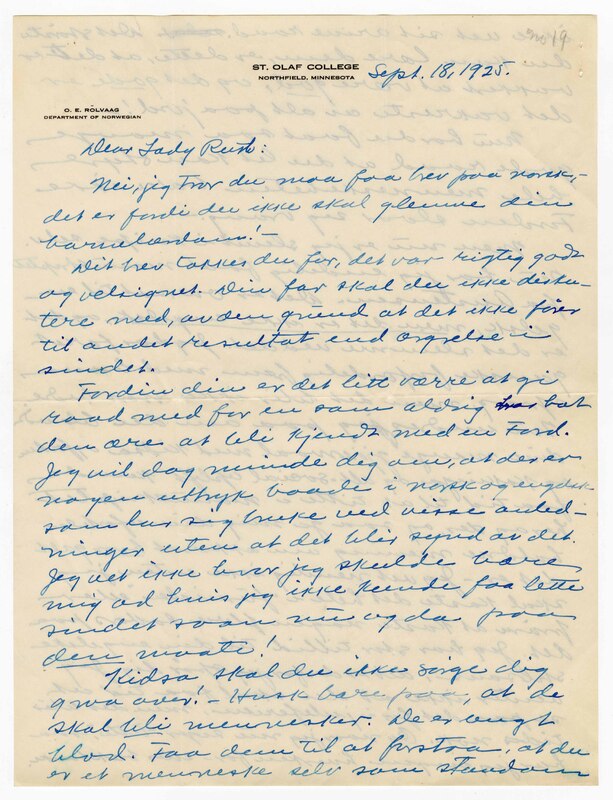 no 19
ST. OLAF COLLEGE
NORTHFIELD, MINNESOTA
Sept. 18, 1925.
O. E. RÖLVAAG
DEPARTMENT OF NORWEGIAN
Dear Lady Ruth:
Nei, jeg tror du maa faa brev paa norsk,
det er fordi du ikke skal glemme din
barnelærdom! —
Dit brev takkes du for, det var rigtig godt
og velsignet. Din far skal du ikke disku-
tere med, av den grund at det ikke fører
til andet resultat end ærgrelse i
sindet.
Fordin din er det litt værre at gi
raad med for en som aldrig hat
den ære at bli kjendt med en Ford.
Jeg vil dog minde dig om, at der er
nogen uttryk baade i norsk og engelsk
som lar sig bruke ved visse anled-
ninger uten at det blir synd at det.
Jeg vet ikke hvor jeg skulde bære
mig ad hvis jeg ikke kunde faa lette
sindet saan nu og da paa
den maate!
Kidsa skal du ikke sørge dig
graa over! — Husk bare paa, at de
skal bli mennesker. De er ungt
blod. Faa dem til at forstaa, at du
er et menneske selv som